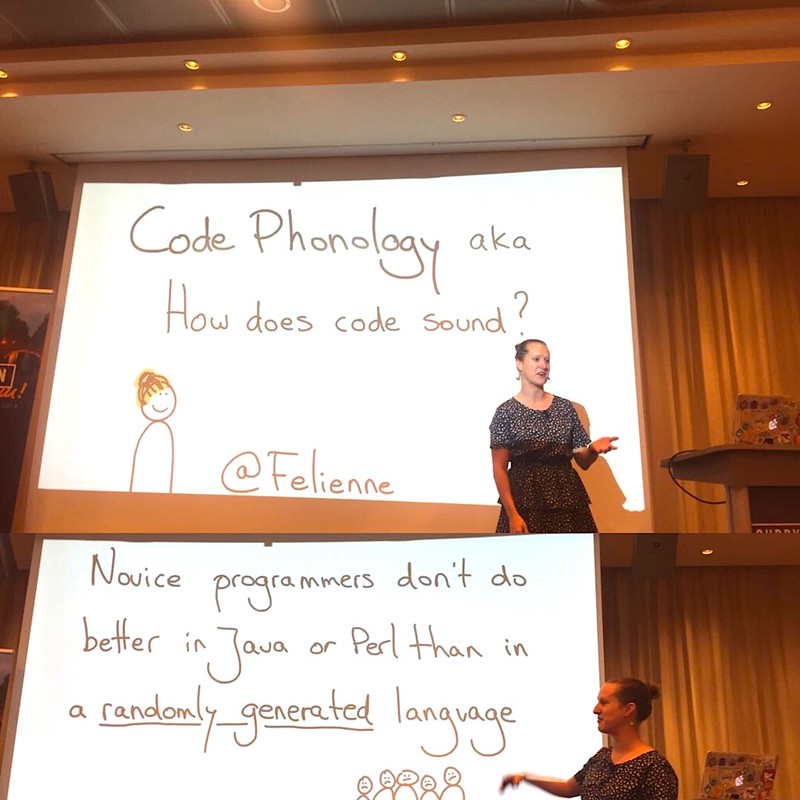 Code Phonology aka
How does code sound?
@Felienne
Novice programmers don't do
better in Java or Perl than in
a randomly generated language